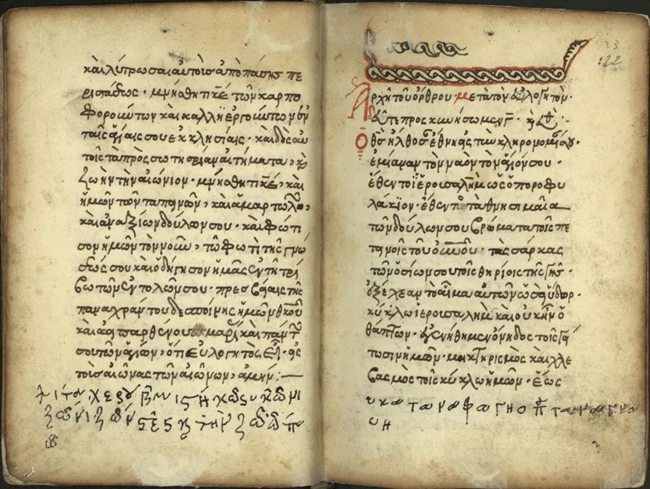 καὶ λύτρωσαι αὐτοὺς ἀπὸ πάσης πε
ριστάσεως· μνήσθητι κε τῶν καρπο
φορούντων καὶ καλλιεργούντων ἐν
ταῖς ἁγίαις σου ἐκκλησίαις· καὶ δὸς αὐ
τοῖς τὰ πρὸς σωτηρίαν αἰτήματα, κ
ζωὴν τὴν αἰώνιον· μνήσθητι κε, καὶ
ἡμῶν τῶν ταπεινῶν, καὶ ἁμαρτωλῶν,
καὶ ἀναξίων δούλων σου· καὶ φώτι
σον ἡμῶν τὸν νοῦν, τῷ φωτὶ τῆς γνώ
σεώς σου καὶ ὁδήγησον ἡμᾶς ἐν τῇ τρί
βῳ τῶν ἐντολῶν σου· πρεσβείαις τῆς
παναχράντου δεσποίνης ἡμῶν θκου
καὶ ἀειπαρθένου μαρίας καὶ πάντων
σου τῶν ἁγίων, ὅτι εὐλογητὸς εἶ· εἰς
τοὺς αἰῶνας τῶν αἰώνων, ἀμήν:—
Ἀρχὴ τοῦ ὄρθρου μετὰ τὸν εὐλογητὸν·
Δεῦτε προσκυνήσωμεν γ·
Ὁ θς ἤλθοσαν ἔθνη εἰς τὴν κληρονομίαν σου·
ἐμίαναν τὸν ναὸν τὸν ἅγιόν σου·
ἔθεντο ἱερουσαλὴμ ὡς ὀπωροφυ
λάκιον· ἔθεντο τὰ θνησιμαῖα
τῶν δούλων σου βρώματα τοῖς πε
τεινοῖς τοῦ οὐνοῦ· τὰς σάρκας
τῶν ὁσίων σου τοῖς θηρίοις τῆς γῆς·
ἐξέχεαν τὸ αἷμα αὐτῶν ὡσεὶ ὕδωρ·
κύκλῳ ἱερουσαλὴμ καὶ οὐκ ἦν ὁ
θάπτων· ἐγενήθημεν ὄνειδος τοῖς γεί
τοσιν ἡμῶν· μυκτηρισμὸς καὶ χλε
βασμὸς τοῖς κύκλῳ ἡμῶν· ἕως